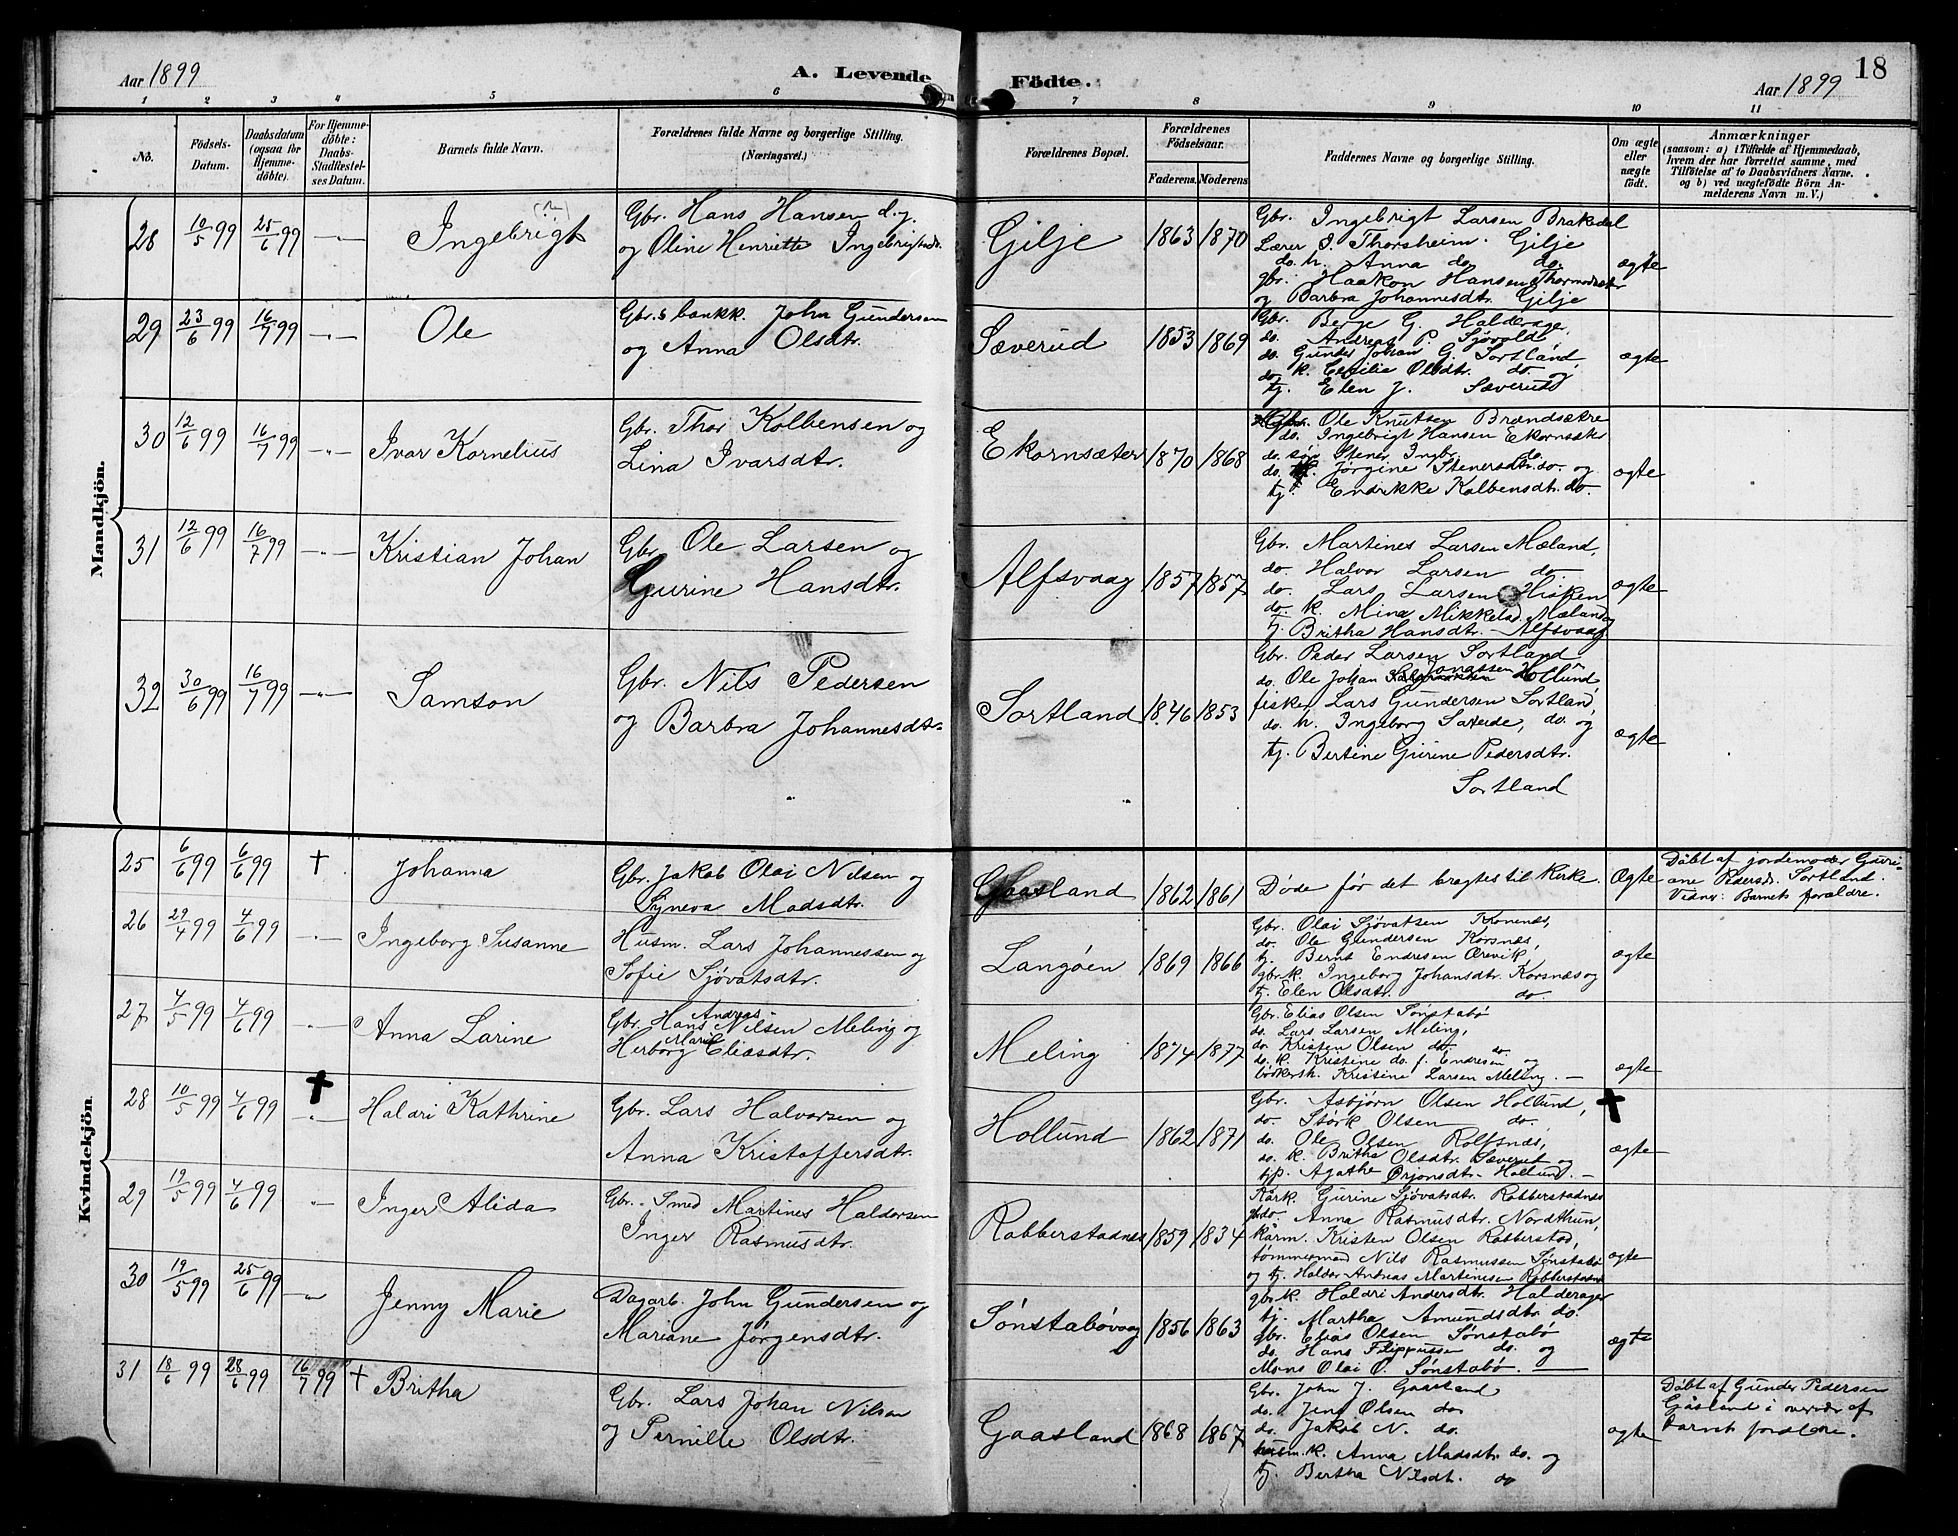 18
Aar 1899
A. Levende Födte.
Aar 1899
1 2 3 4 5 6 7 8 9 10 11
No.
Födsels-
Datum.
Daabsdatum
(ogsaa for
Hjemme-
döbte).
For Hjemme-
döbte:
Daabs-
Stadfæstel-
ses Datum.
Barnets fulde Navn.
Forældrenes fulde Navne og borgerlige Stilling.
(Næringsvei.)
Forældrenes Bopæl.
Forældrenes
Födselsaar.
Faderens. Moderens.
Faddernes Navne og borgerlige Stilling.
Om ægte
eller
uægte
födt.
Anmærkninger
(saasom: a) i Tilfælde af Hjemmedaab,
hvem der har forrettet samme, med
Tilföielse af to Daabsvidners Navne,
og b) ved uægtefödte Börn An-
melderens Navn m. V.)
Mandkjön.
28 10/5 99 25/6 99 -"- Ingebrigt
Gbr. Hans Hansen d.y.
og Oline Henriette Ingebrigtsdt.
Gilje 1863 1870
Gbr. Ingebrigt Larsen Brakedal
Lærer S. Thorsheim. Gilje
do. h. Anna do. do.
gbr. Haakon Hansen Thormodsæter
og Barbra Johannesdtr. Gilje
ægte
29 23/6 99 16/7 99 -"- Ole
Gbr. & bankk. John Gundersen
og Anna Olsdtr.
Sæverud 1853 1869
Gbr. Berje G. Halderager,
do. Andreas P. Sjøvold,
do. Gunder Johan G. Sortland,
do. k. Cecilie Olsdtr. do. og
tj. Elen J. Sæverud
ægte
30 12/6 99 16/7 99 -"- Ivar Kornelius
Gbr. Thor Kolbensen og
Lina Ivarsdtr.
Ekornsæter 1870 1868
Gbr. Ole Knutsen Brændsætre
do. Ingebrigt Hansen Ekornsæter
do. søn Stener Ingbr. do.
do. k. Jørgine Stenersdtr. do. og
tj. Endrikke Kolbensdtr. do.
ægte
31 12/6 99 16/7 99 -"- Kristian Johan
Gbr. Ole Larsen og
Gurine Hansdtr.
Alfsvaag 1857 1857
Gbr. Martines Larsen Mæland,
do. Halvor Larsen do.
do. Lars Larsen Hisken
do. k. Mina Mikkelsd. Mæland og
tj. Britha Hansdtr. - Alfsvaag
ægte
32 30/6 99 16/7 99 -"- Samson
Gbr. Nils Pedersen
og Barbra Johannesdtr.
Sortland 1846 1853
Gbr. Peder Larsen Sortland
do. Ole Johan Jonassen Hollund,
fisker Lars Gundersen Sortland,
do. h. Ingeborg Sæteide, do. og
tj. Bertine Gurine Pedersdtr.
Sortland
ægte
Kvindekjön.
25 6/6 99 6/6 99 † Johanna
Gbr. Jakob Olai Nilsen og
Syneva Madsdtr.
Gaasland 1862 1861
Døde før det bragtes til Kirke.
Ægte
Døbt af jordemoder Guri-
ane Pedersd. Sortland.
Vidner: Barnets forældre.
26 29/4 99 4/6 99 -"- Ingeborg Susanne
Husm. Lars Johannessen og
Sofie Sjøvatsdtr.
Langøen 1869 1866
Gbr. Olai Sjøvatsen Kornes,
do. Ole Gundersen Korsnæs,
tj. Bernt Endresen Ørevik,
gbr. k. Ingeborg Johansdtr. Korsnæs og
tj. Elen Olsdtr. do.
ægte
27 4/5 99 4/6 99 -"- Anna Larine
Gbr. Hans Andreas Nilsen Meling og
Herborg Marie Eliasdtr.
Meling 1874 1877
Gbr. Elias Olsen Sønstabø
do. Lars Larsen Meling,
do. Kristen Olsen do.
do. k. Kristine do. f. Endresen do. og
bødkersh. Kristine Larsen Meling. -
ægte
28 10/5 99 4/6 99 † -"- Haldri Kathrine
Gbr. Lars Halvorsen og
Anna Kristoffersdtr.
Hollund 1862 1871
Gbr. Asbjørn Olsen Hollund,
do. Størk Olsen do.
do. Ole Olsen Rolfsnæs,
do. k. Britha Olsdtr. Sæverut og
tjp. Agathe Ørjansdtr. Hollund. -
† ægte
29 19/5 99 4/6 99 " Inger Alida
Gbr. - Smed Martines Haldorsen
Inger Rasmusdtr.
Robberstadnæs 1859 1834
Kårk. Gurine Sjøvatsdtr. Robberstadnæs
do. Anna Rasmusdtr. Nordthun,
kårm. Kristen Olsen Robberstad,
tømmermand Nils Rasmussen Sønstabø
og tj. Haldor Andreas Martinesen Robberstadnæs
ægte
30 19/5 99 25/6 99 -"- Jenny Marie
Dagarb. John Gundersen og
Mariane Jørgensdtr.
Sønstabøvaag 1856 1863
gbr. k. Haldri Andersdtr. Halderager
tj. Martha Amundsdtr. do.
Gbr. Elias Olsen Sønstabø
do. Hans Filippussen do. og
Mons Olai O. Sønstabø.
ægte
31 18/6 99 28/6 99 16/7 99 † Britha
Gbr. Lars Johan Nilsen
og Pernille Olsdtr.
Gaasland 1868 1867
Gbr. John J. Gaasland
do. Jens Olsen do.
do. Jakob N. do.
husm. k. Anna Madsdtr. do. og
tj. Bertha Nilsdt. do
ægte
Døbt af Gunder Pedersen
Gåsland i overvær af
barnets forældre.